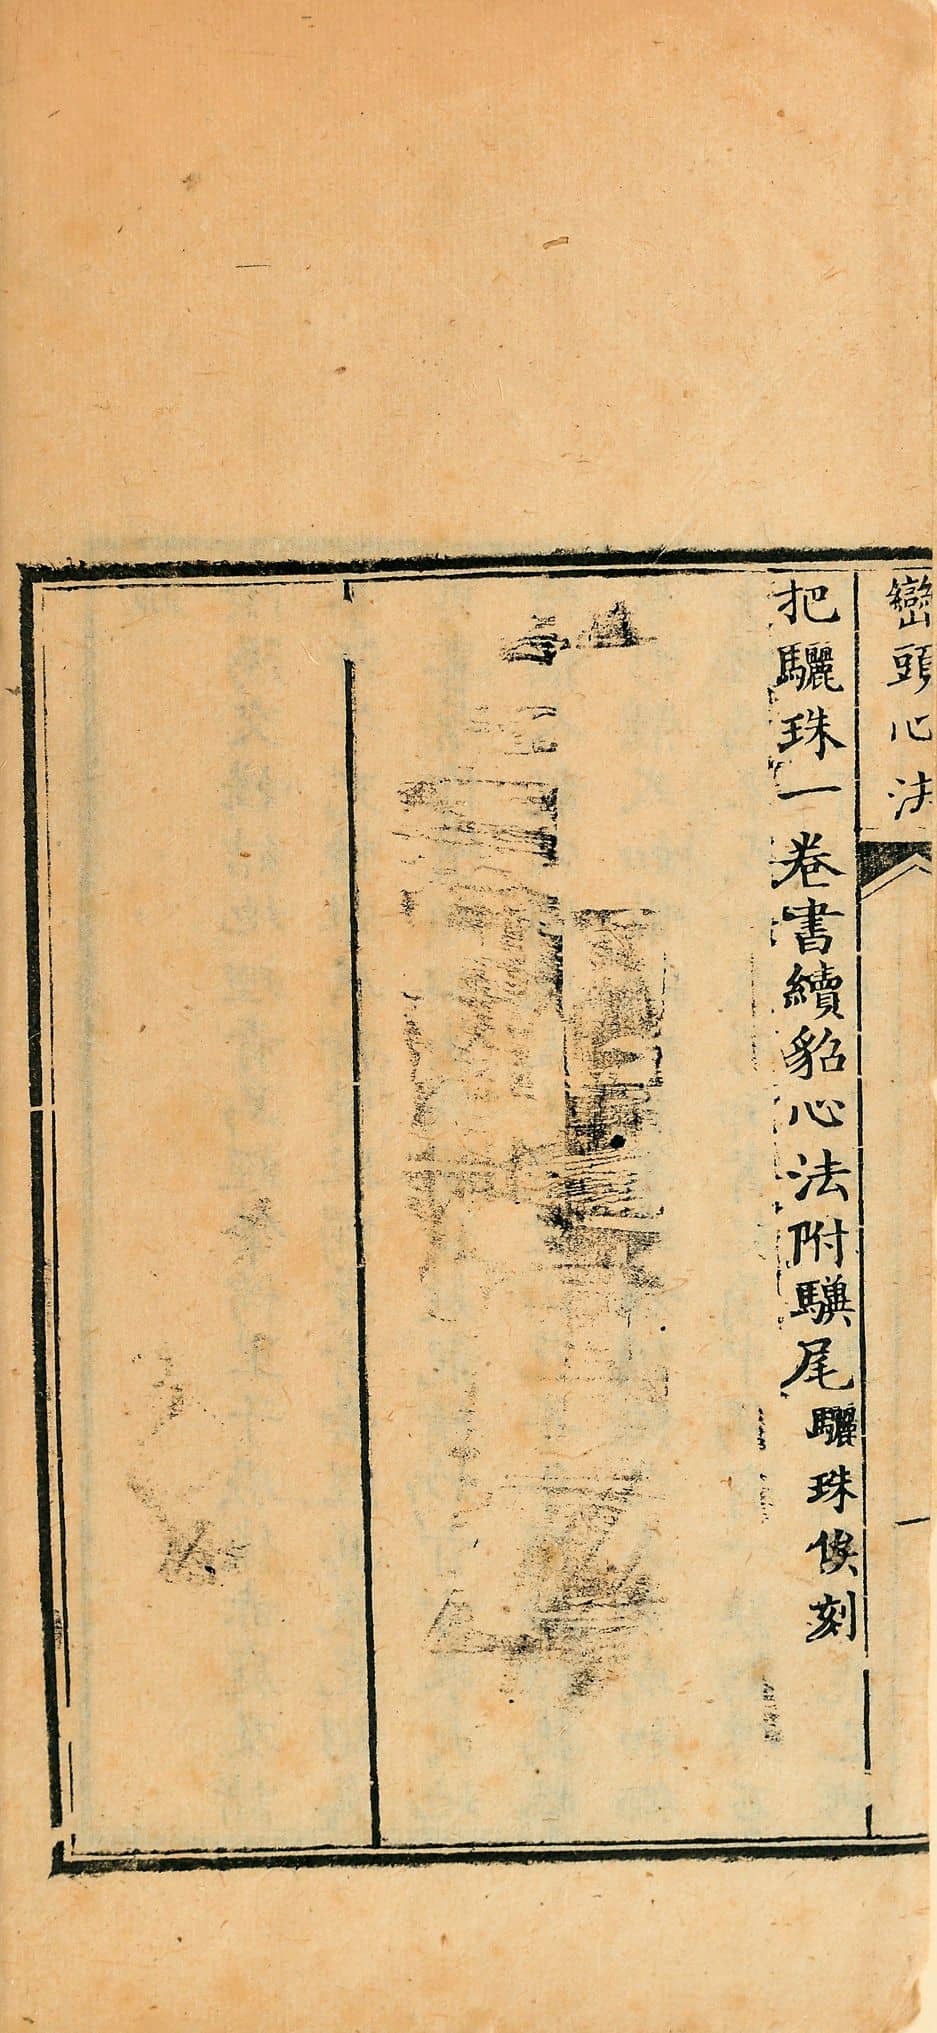 巒頭心法
一
把驪珠一卷書續貂心法附驥尾驪珠俟刻